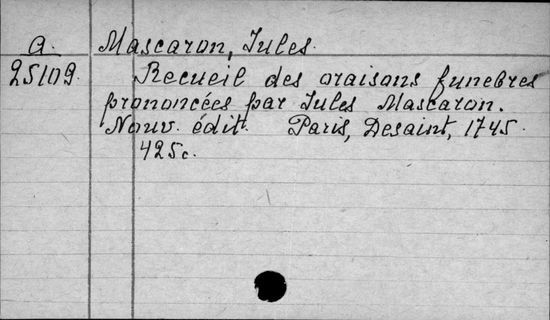 a. Mascaron, Jules.
25109. Recueil des oraisons funebres
prononcées par Jules Mascaron.
Nouv. édit. Paris, Desaint, 1745.
425c.